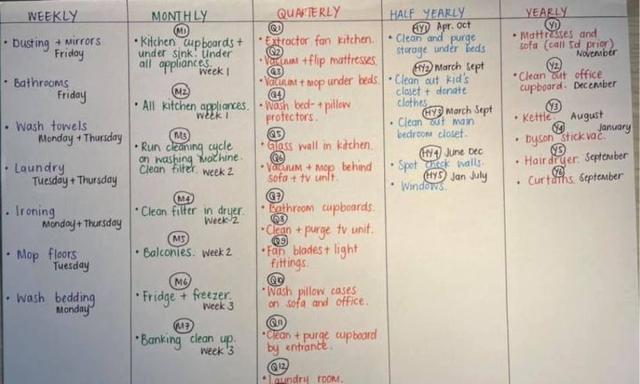 WEEKLY
• Dusting + Mirrors
Friday
• Bathrooms
Friday
• Wash towels
Monday + Thursday
• Laundry
Tuesday + Thursday
• Ironing
Monday + Thursday
• Mop floors
Tuesday
• Wash bedding
Monday
MONTHLY
M1
• Kitchen cupboards +
under sink. Under
all appliances.
Week 1
M2
• All kitchen appliances.
Week 1
M3
• Run cleaning cycle
on washing machine.
Clean filter. Week 2
M4
• Clean filter in dryer.
Week 2
M5
• Balconies. Week 2
M6
• Fridge + freezer.
Week 3
M7
• Banking clean up.
Week 3
QUARTERLY
Q1
• Extractor fan kitchen.
Q2
• Vacuum + flip mattresses.
Q3
• Vacuum + mop under beds.
Q4
• Wash bed- + pillow
protectors.
Q5
• Glass wall in kitchen.
Q6
• Vacuum + mop behind
sofa + tv unit.
Q7
• Bathroom cupboards.
Q8
• Clean + purge tv unit.
Q9
• Fan blades + light
fittings.
Q10
• Wash pillow cases
on sofa and office.
Q11
• Clean + purge cupboard
by entrance.
Q12
• Laundry room.
HALF YEARLY
HY1 Apr, Oct
• Clean and purge
storage under beds
HY2 March Sept
• Clean out kid's
closet + donate
clothes
HY3 March Sept
• Clean out main
bedroom closet.
HY4 June Dec
• Spot check walls.
HY5 Jan July
• Windows.
YEARLY
Y1
• Mattresses and
sofa (call 5d prior)
November
Y2
• Clean out office
cupboard. December
Y3
• Kettle. August
Y4 January
• Dyson stick vac.
Y5
• Hairdryer. September
Y6
• Curtains. September